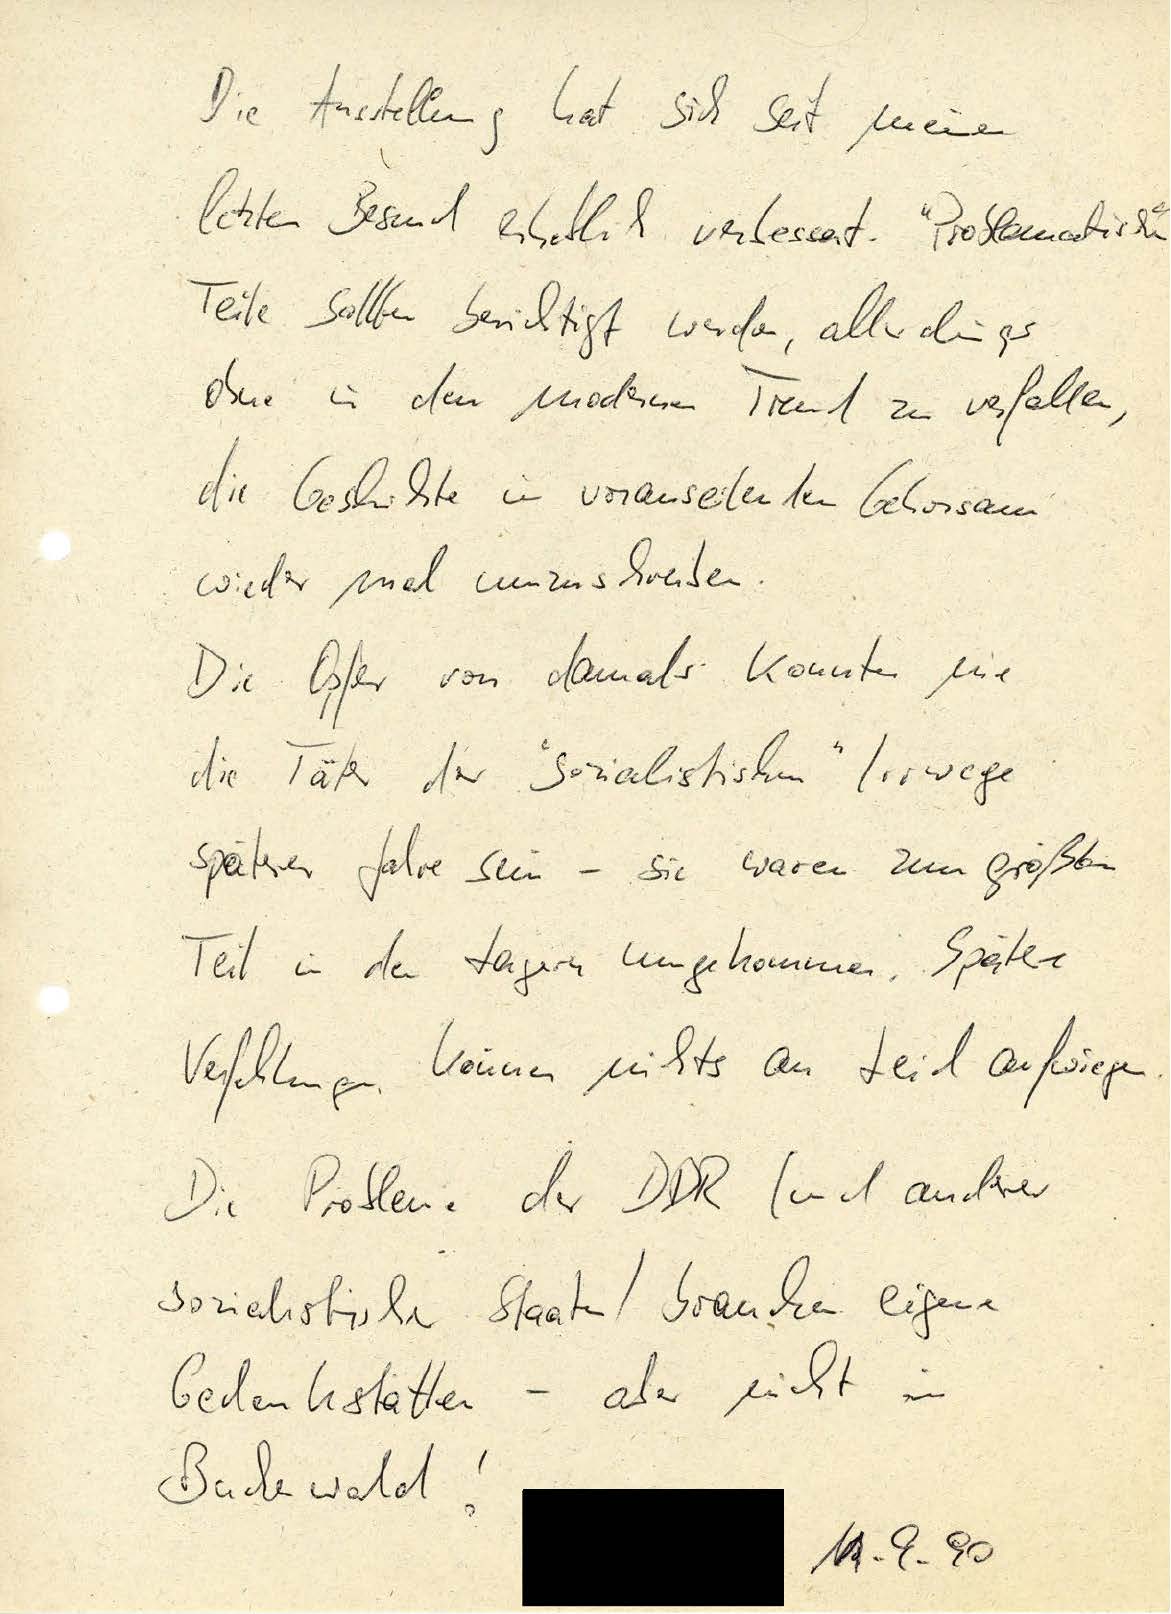 Die Ausstellung hat sich seit meinem
letzten Besuch erheblich verbessert. "Problematische"
Teile sollten berichtigt werden, allerdings
ohne in den modernen Trend zu verfallen,
die Geschichte in vorauseilendem Gehorsam
wieder mal umzuschreiben.
Die Opfer von damals konnten nie
die Täter der "sozialistischen" Irrwege
späterer Jahre sein – sie waren zum größten
Teil in den Lagern umgekommen. Spätere
Verfehlungen können nichts an Leid aufwiegen.
Die Probleme der DDR (und anderer
sozialistischer Staaten) brauchen eigene
Gedenkstätten – aber nicht in
Buchenwald!
.9.90